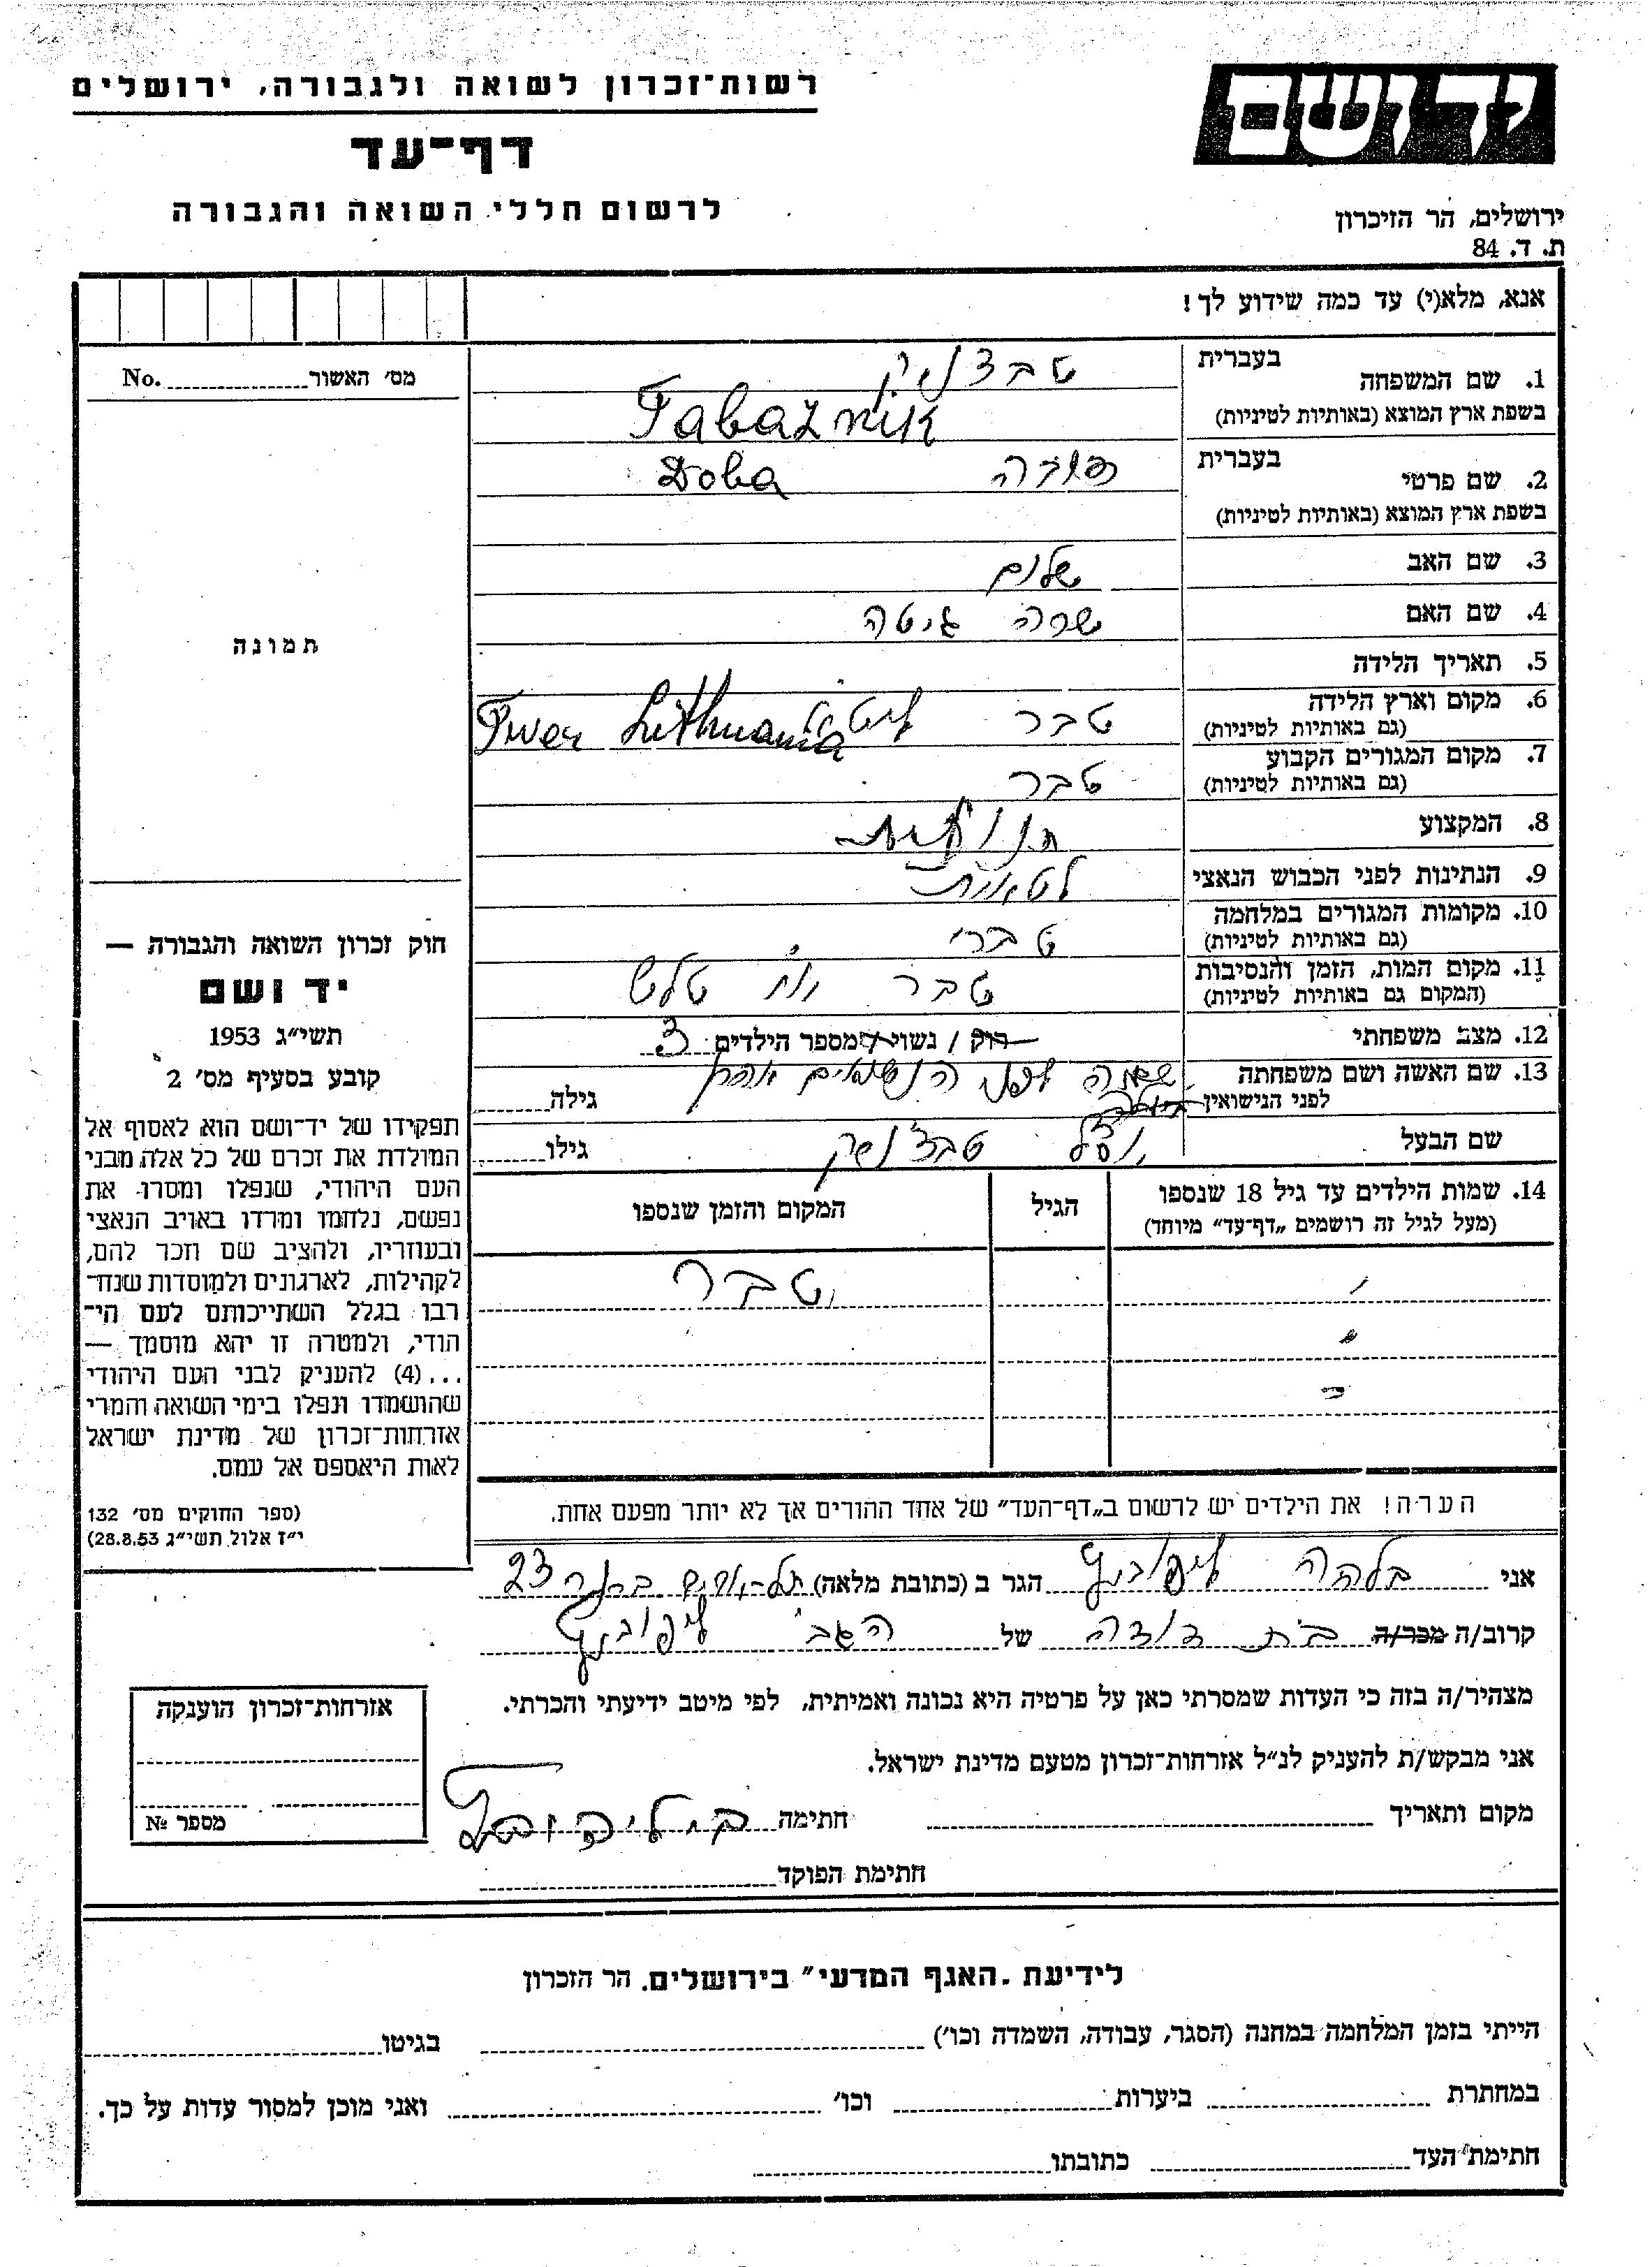 יד ושם
רשות־זכרון לשואה ולגבורה, ירושלים
דף־עד
לרשום חללי השואה והגבורה
ירושלים, הר הזיכרון
ת. ד. 84
אנא, מלא(י) עד כמה שידוע לך!
1. שם המשפחה
בעברית טבצניק
בשפת ארץ המוצא (באותיות לטיניות) Tabaznik
2. שם פרטי
בעברית
בשפת ארץ המוצא (באותיות לטיניות) Doba
3. שם האב שלום
4. שם האם שרה גיטה
5. תאריך הלידה
6. מקום וארץ הלידה
(גם באותיות לטיניות) טבר Twer Lithuania
7. מקום המגורים הקבוע
(גם באותיות לטיניות) טבר
8. המקצוע חנונית
9. הנתינות לפני הכבוש הנאצי לטאית
10. מקומות המגורים במלחמה
(גם באותיות לטיניות) טבר
11. מקום המות, הזמן והנסיבות
(המקום גם באותיות לטיניות) טבר
12. מצב משפחתי רוק / נשוי / מספר הילדים 3
13. שם האשה ושם משפחתה
לפני הנישואין שמה לפני הנשואים גילה
שם הבעל טבצניק גילו
14. שמות הילדים עד גיל 18 שנספו
(מעל לגיל זה רושמים „דף־עד” מיוחד)
הגיל
המקום והזמן שנספו
טבר
הערה! את הילדים יש לרשום ב„דף־העד” של אחד ההורים אך לא יותר מפעם אחת.
אני בלהה ליפוביץ הגר ב (כתובת מלאה) תל-אביב 23
קרוב/ה מכר/ה בת דודה של הגב' ליפוביץ
מצהיר/ה בזה כי העדות שמסרתי כאן על פרטיה היא נכונה ואמיתית, לפי מיטב ידיעתי והכרתי.
אני מבקש/ת להעניק לנ״ל אזרחות־זכרון מטעם מדינת ישראל.
מקום ותאריך חתימה ב. ליפוביץ
חתימת הפוקד
מס׳ האשור No.
תמונה
חוק זכרון השואה והגבורה —
יד ושם
תשי״ג 1953
קובע בסעיף מס׳ 2
תפקידו של יד־ושם הוא לאסוף אל
המולדת את זכרם של כל אלה מבני
העם היהודי, שנפלו ומסרו את
נפשם, נלחמו ומרדו באויב הנאצי
ובעוזריו, ולהציב שם וזכר להם,
לקהילות, לארגונים ולמוסדות שנח־
רבו בגלל השתייכותם לעם הי־
הודי, ולמטרה זו יהא מוסמך —
...(4) להעניק לבני העם היהודי
שהושמדו ונפלו בימי השואה והמרי
אזרחות־זכרון של מדינת ישראל
לאות היאספם אל עמם.
(ספר החוקים מס׳ 132
י״ז אלול תשי״ג 28.8.53)
אזרחות־זכרון הוענקה
מספר №
לידיעת .האגף המדעי״ בירושלים. הר הזכרון
הייתי בזמן המלחמה במחנה (הסגר, עבודה, השמדה וכו׳) בגיטו
במחתרת ביערות וכו׳ ואני מוכן למסור עדות על כך.
חתימת העד כתובתו